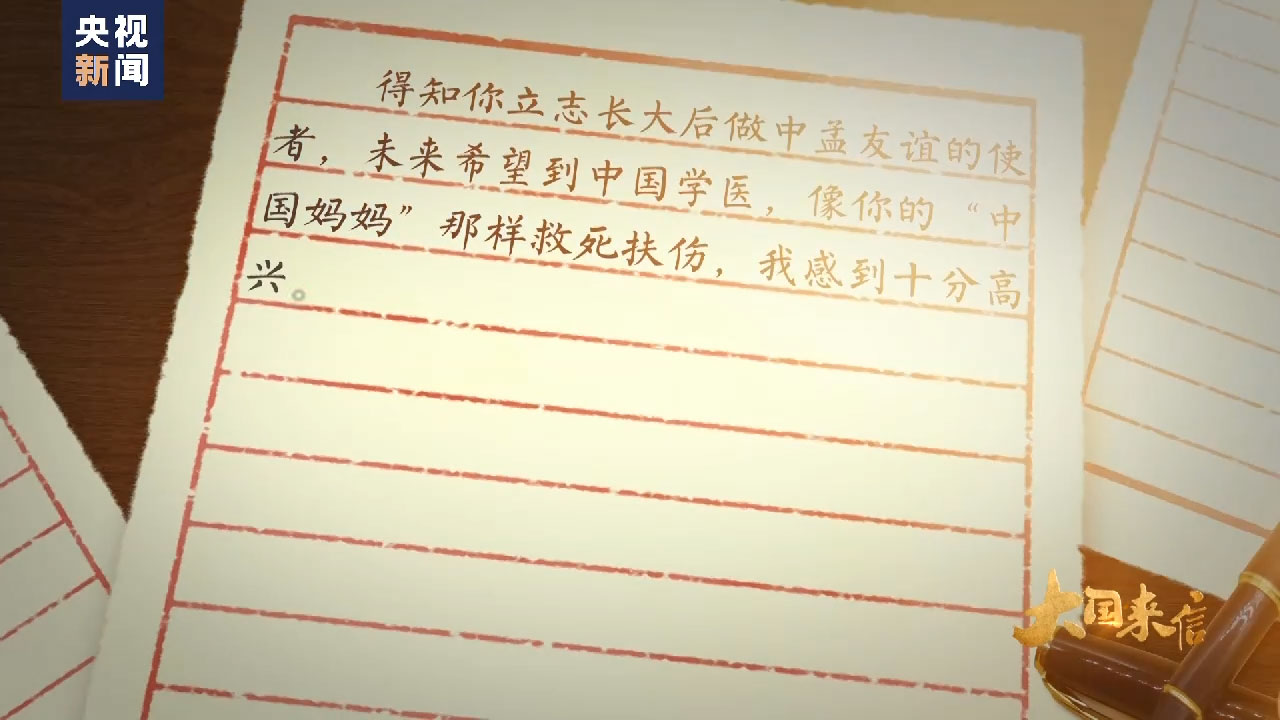 央视
新闻
得知你立志长大后做中孟友谊的使
者，未来希望到中国学医，像你的“中
国妈妈”那样救死扶伤，我感到十分高
兴。
大国来信